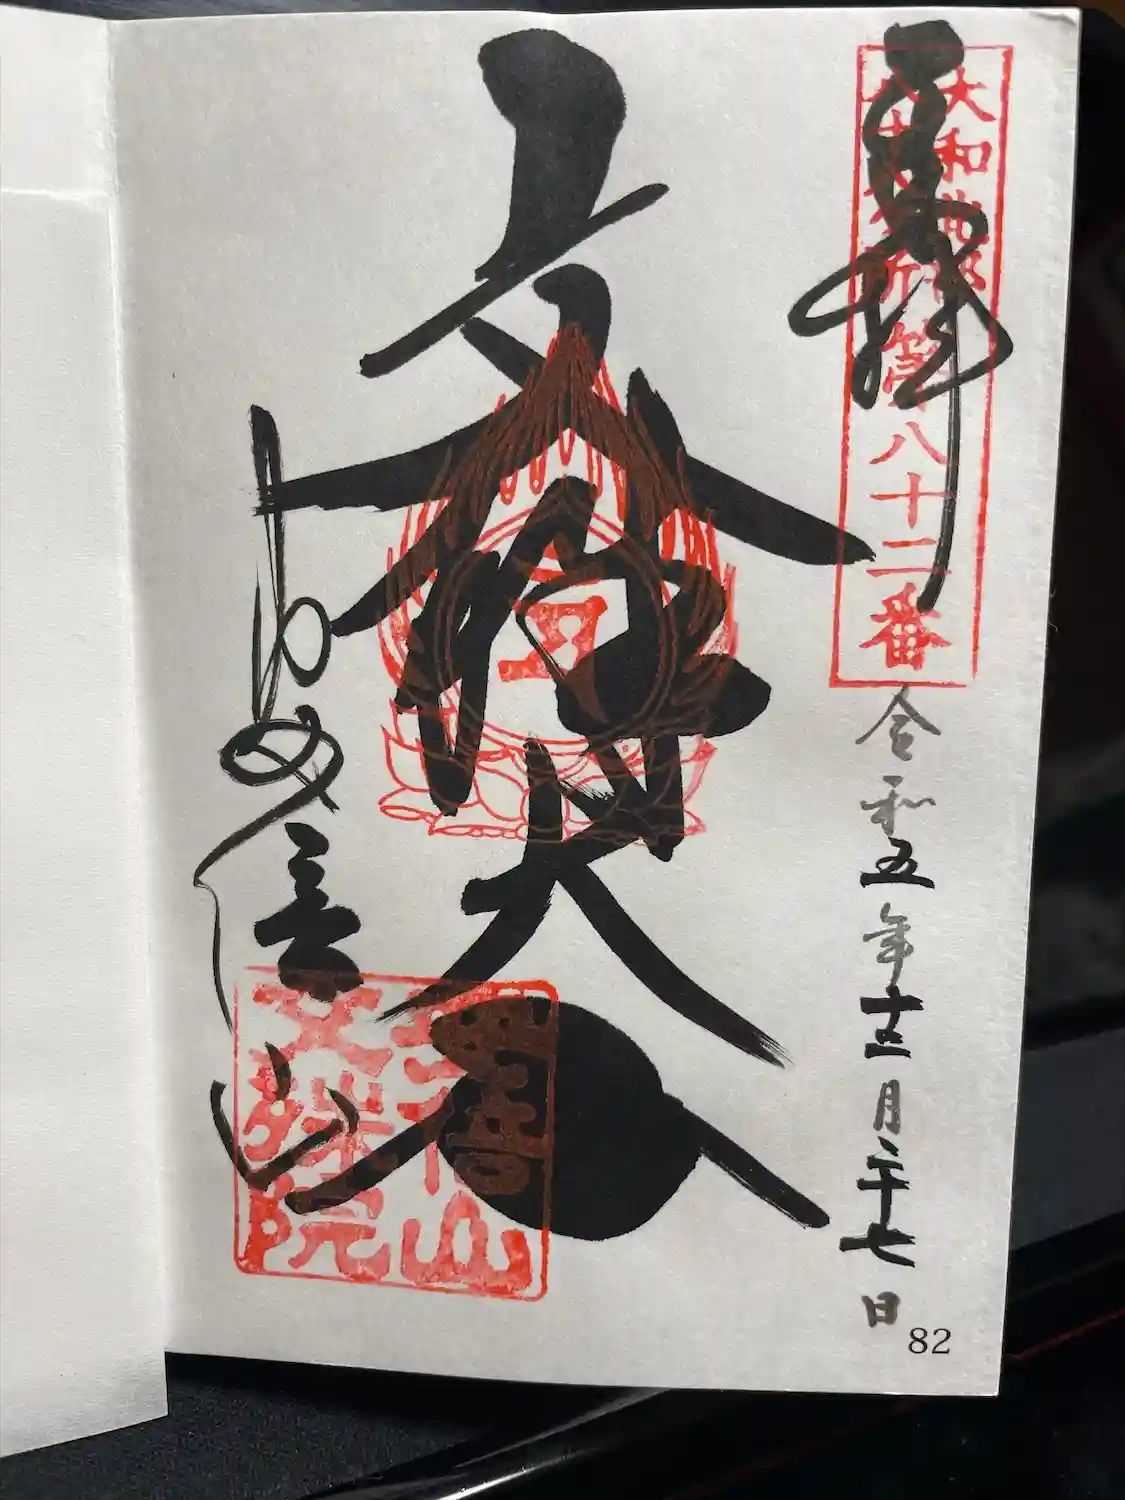 奉拝
大和北部
八十八ヶ所
第八十二番
令和五年十二月二十七日
文殊大士
文殊院
82